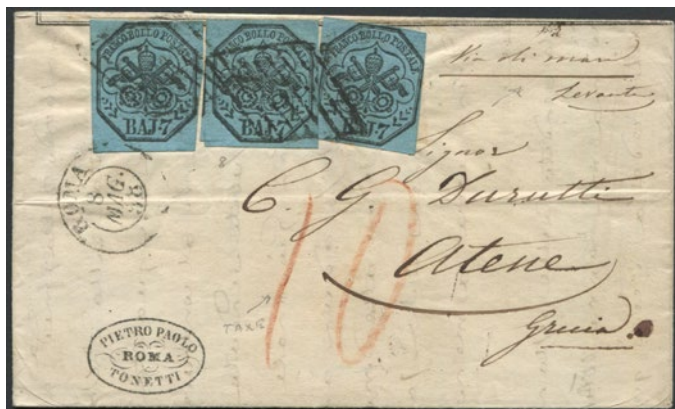 FRANCO BOLLO POSTALE
BAJ. 7
FRANCO BOLLO POSTALE
BAJ. 7
FRANCO BOLLO POSTALE
BAJ. 7
Via di mare
Levante
Signor
C. G. Durutti
Atene
Grecia
ROMA
8
MAG.
10
TAXE
PIETRO PAOLO
ROMA
TONETTI